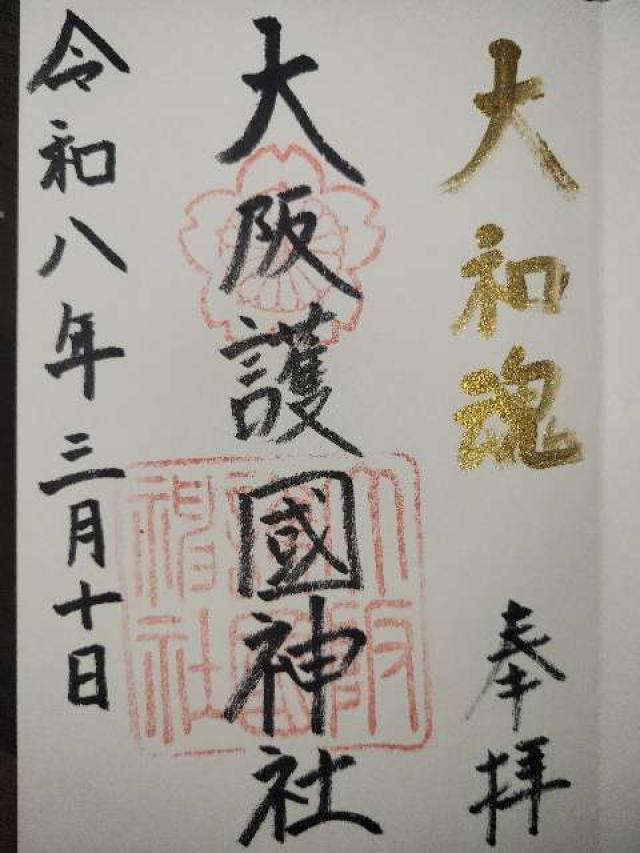 大和魂
奉拝
大阪護國神社
大阪護國神社
令和八年三月十日